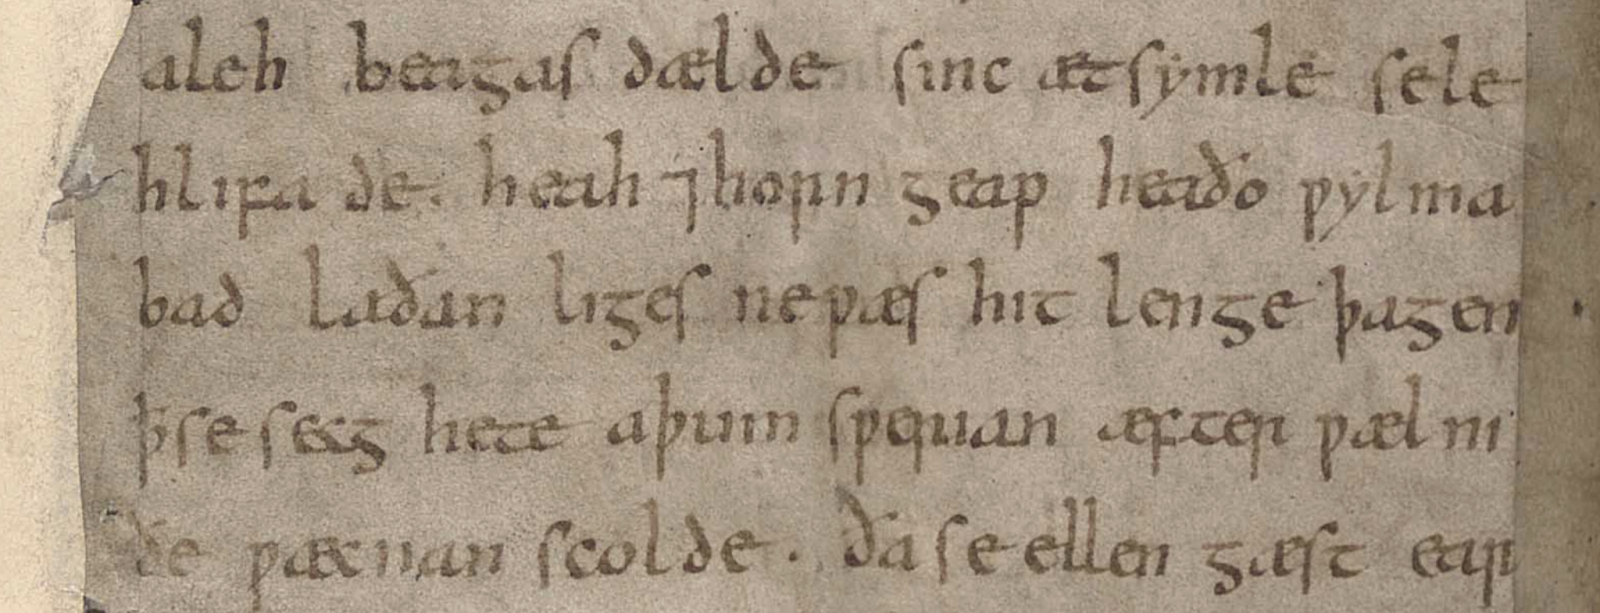 aleh beagas dælde sinc æt symle sele
hlifa de. heah ⁊ horn geap heaðo ƿylma
bad laðan liges ne ƿæs hit lenge þagen
ꝥ se secg hete aþum sƿerian æfter ƿæl ni
ðe ƿæcnan scolde. ða se ellen gæst ear